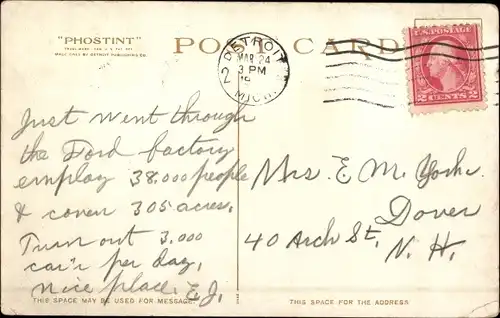 "PHOSTINT"
POST CARD
DETROIT
MAR 24
3 PM
2
MICH.
U.S. POSTAGE
2 CENTS 2
Just went through
the Ford factory
employ 38,000 people
& cover 305 acres,
Turn out 3,000
car's per day,
nice place. E.J.
Mrs. E M. York.
Dover
40 Arch St, N. H.
THIS SPACE MAY BE USED FOR MESSAGE.
THIS SPACE FOR THE ADDRESS